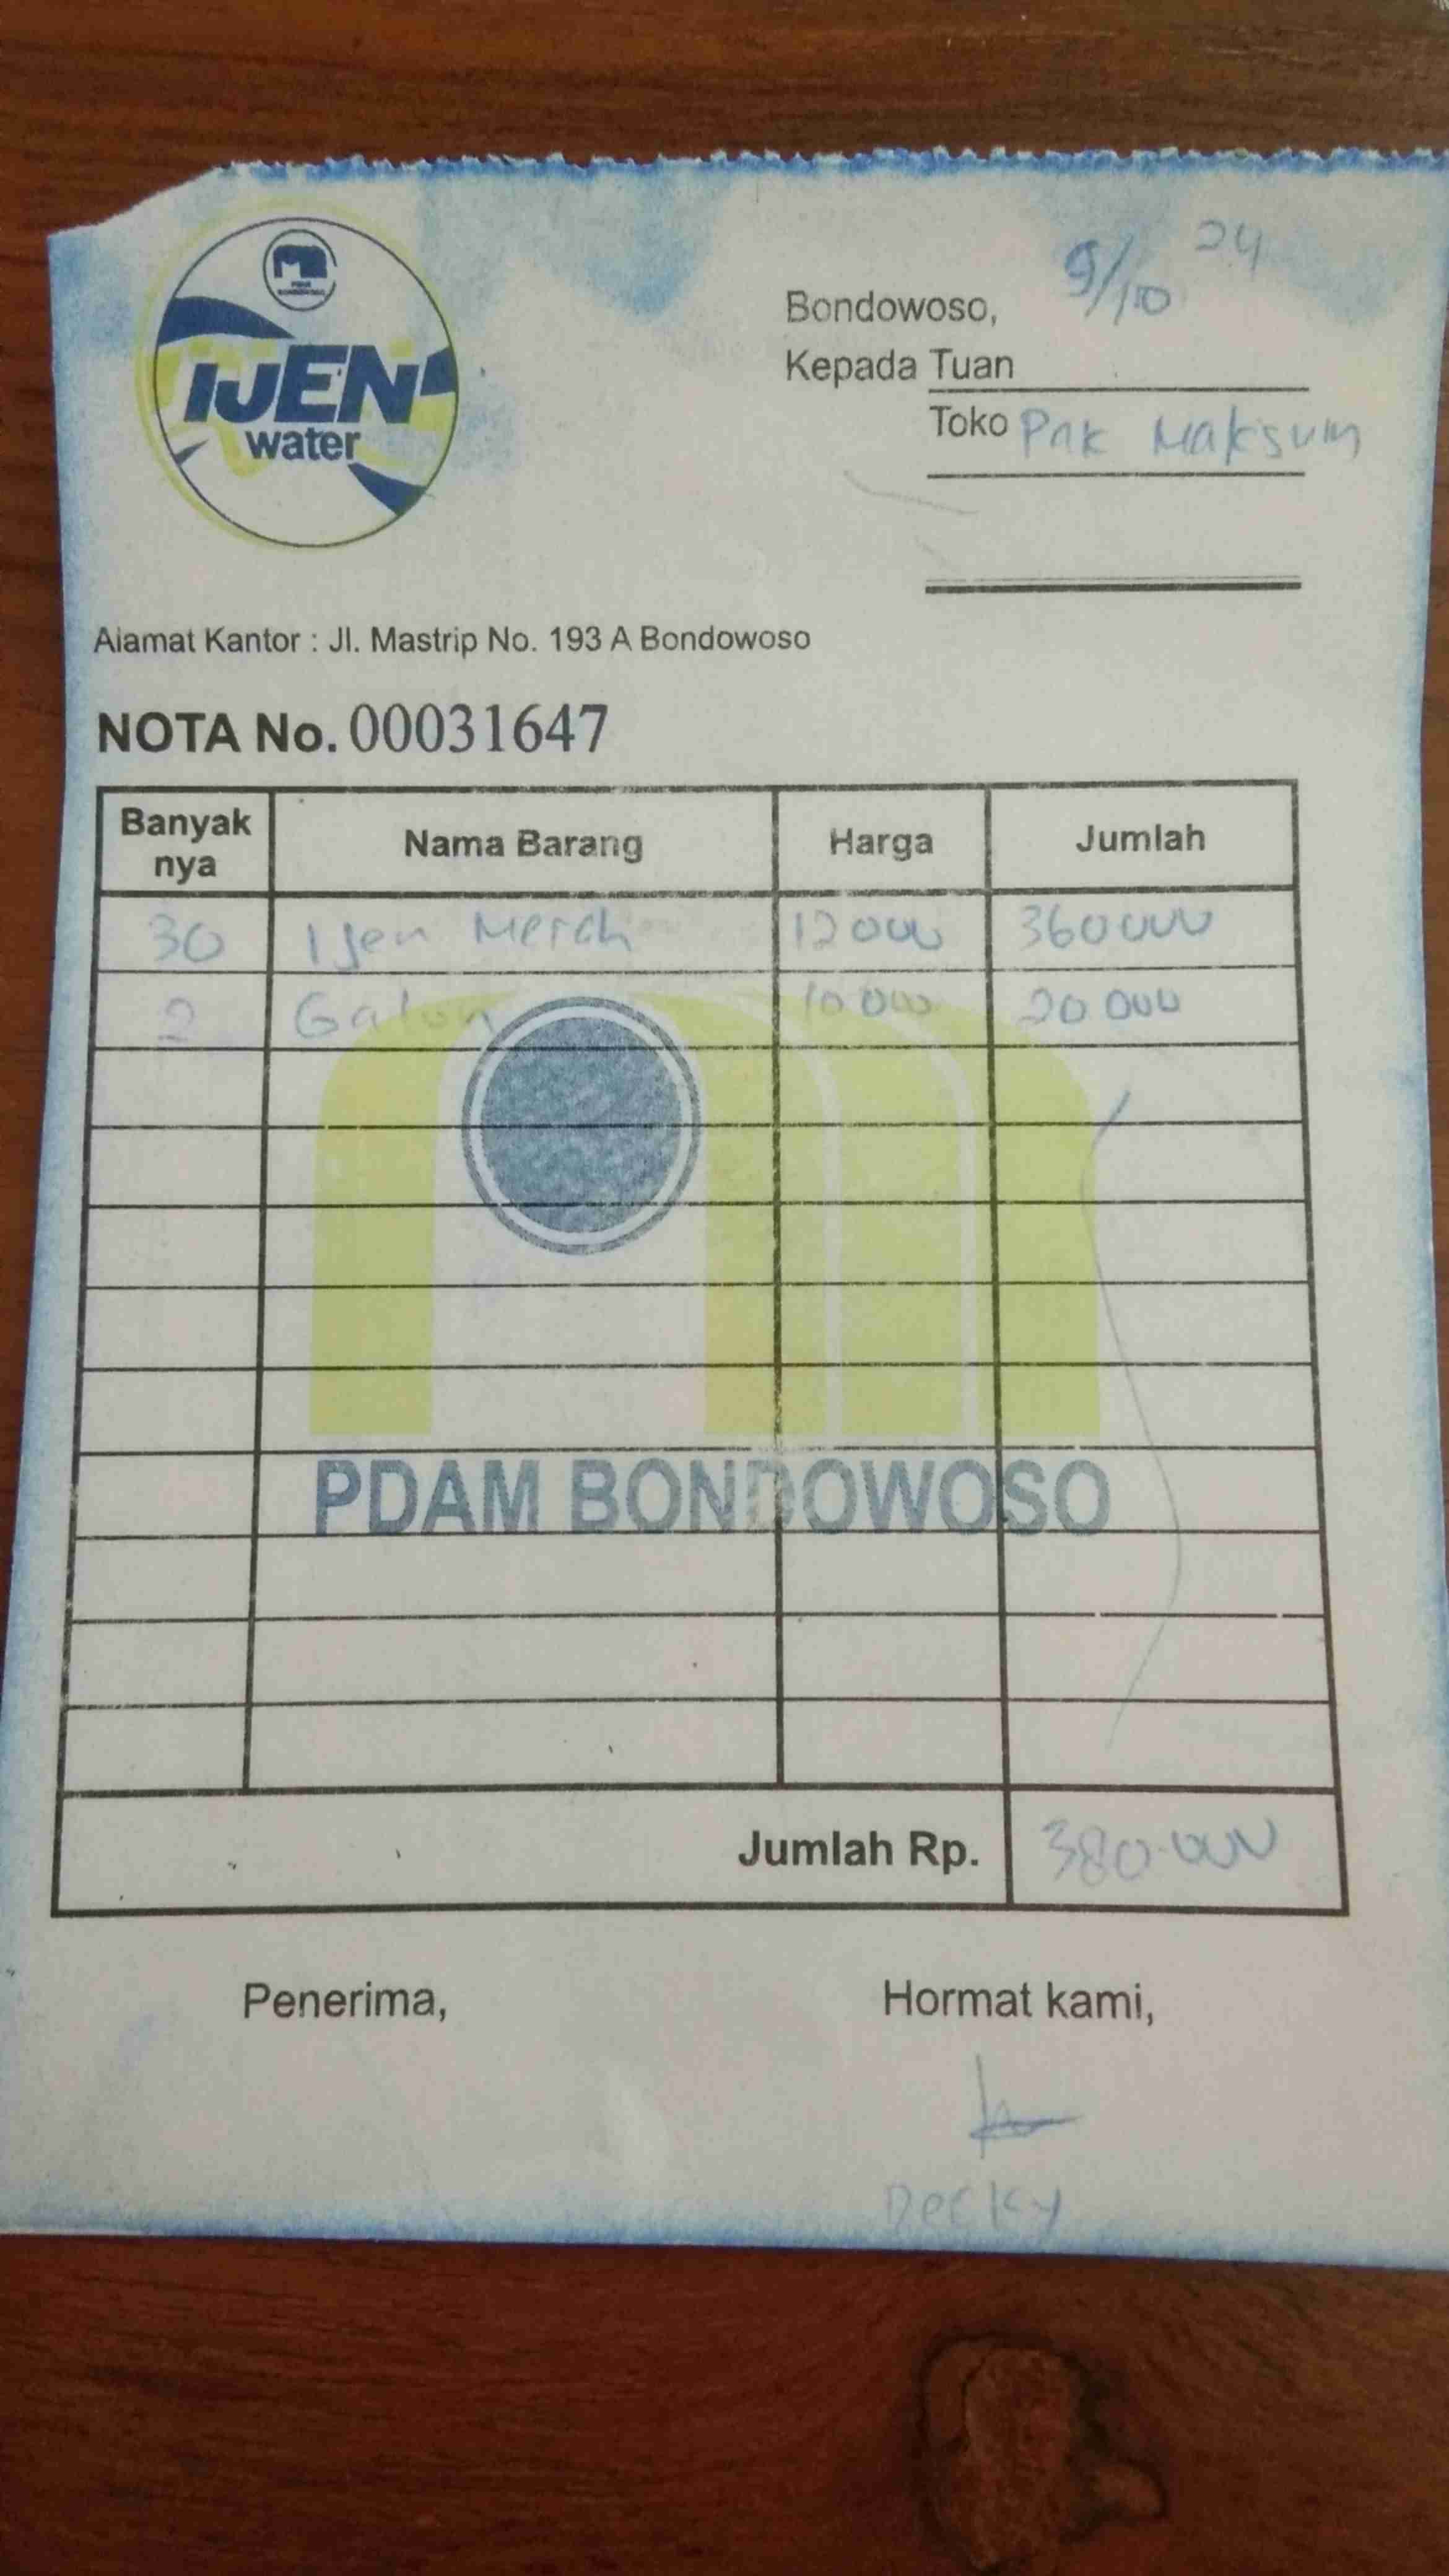 PDAM
BONDOWOSO
IJEN
water
Bondowoso, 9/10 24
Kepada Tuan
Toko Pak Maksum
Alamat Kantor : Jl. Mastrip No. 193 A Bondowoso
NOTA No. 00031647
Banyak nya Nama Barang Harga Jumlah
30 Ijen Merah 12 000 360 000
2 Galon 10 000 20 000
PDAM BONDOWOSO
Jumlah Rp. 380.000
Penerima, Hormat kami,
Decky